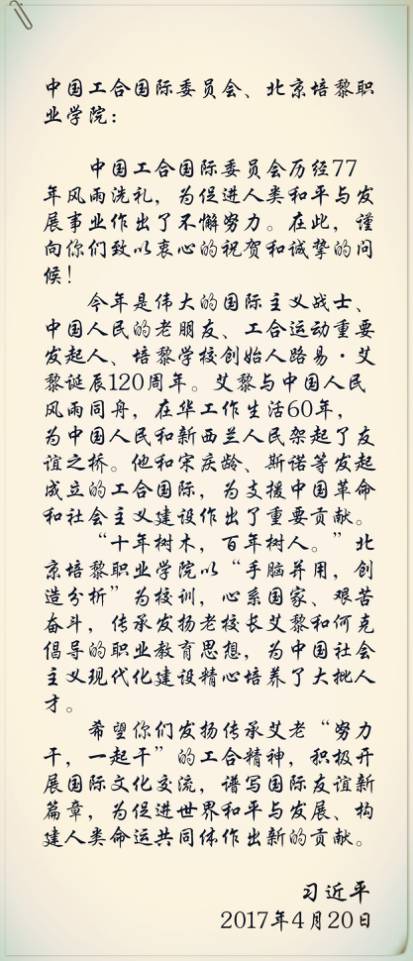 中国工合国际委员会、北京培黎职
业学院：
中国工合国际委员会历经77
年风雨洗礼，为促进人类和平与发
展事业作出了不懈努力。在此，谨
向你们致以衷心的祝贺和诚挚的问
候！
今年是伟大的国际主义战士、
中国人民的老朋友、工合运动重要
发起人、培黎学校创始人路易·艾
黎诞辰120周年。艾黎与中国人民
风雨同舟，在华工作生活60年，
为中国人民和新西兰人民架起了友
谊之桥。他和宋庆龄、斯诺等发起
成立的工合国际，为支援中国革命
和社会主义建设作出了重要贡献。
“十年树木，百年树人。”北
京培黎职业学院以“手脑并用，创
造分析”为校训，心系国家、艰苦
奋斗，传承发扬老校长艾黎和何克
倡导的职业教育思想，为中国社会
主义现代化建设精心培养了大批人
才。
希望你们发扬传承艾老“努力
干，一起干”的工合精神，积极开
展国际文化交流，谱写国际友谊新
篇章，为促进世界和平与发展、构
建人类命运共同体作出新的贡献。
习近平
2017年4月20日